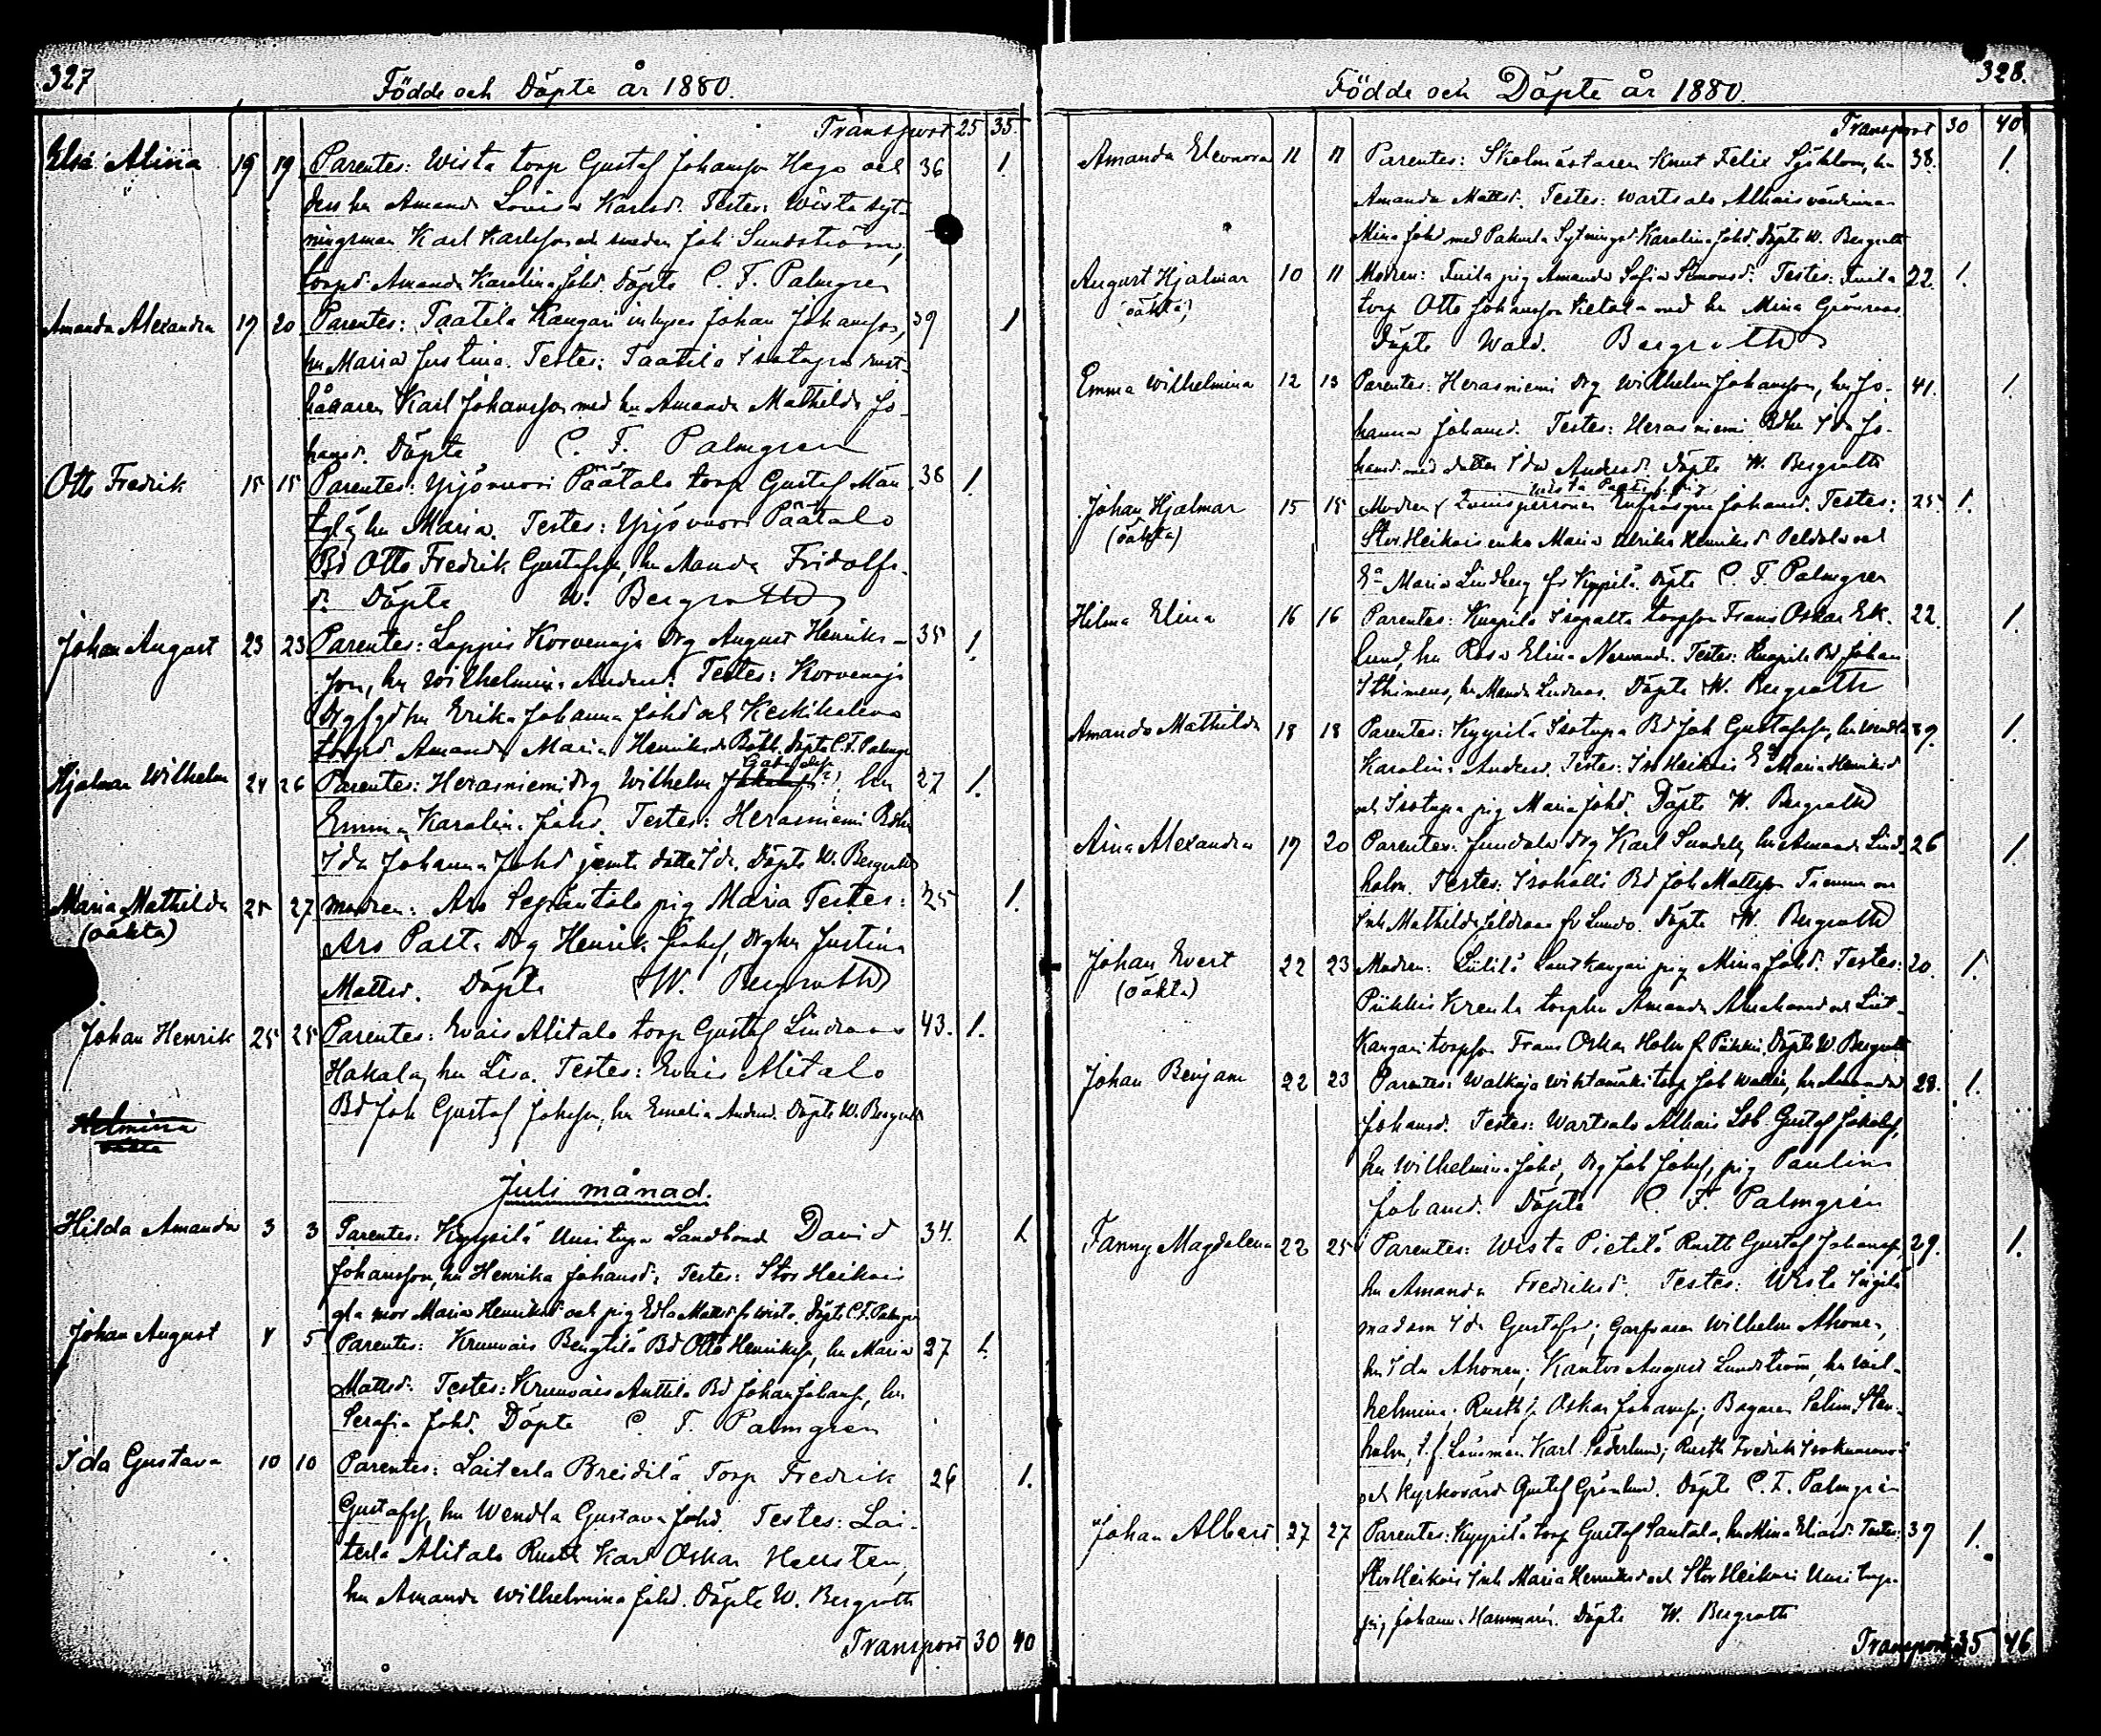 327
Födde och Döpte år 1880.
Transport 25 35.
Elsa Alina 19 19 Parentes: Wista torp Gustaf Johansson Hago och 36 1.
dess hu Amanda Lovisa Karlsd. Testes: Wista syt-
ningsman Karl Karlsson och smeden Joh Sundström,
torpd. Amanda Karolina Johd. Döpte C. F. Palmgren
Amanda Alexandra 19 20 Parentes: Taatila Kangari inhyses Johan Johansson, 39 1
hu Maria Justina. Testes: Taatila Isotupa rust-
hållaren Karl Johansson med hu Amanda Mathilda Jo-
hansd. Döpte C. F. Palmgren
Otto Fredrik 15 15 Parentes: Yrjövuori Päätalo torp Gustaf Män- 38 1.
tylä, hu Maria. Testes: Yrjövuori Päätalo
Bd Otto Fredrik Gustafsson, hu Manda Fridolfs-
d. Döpte W. Bergroth
Johan August 23 23 Parentes: Lappis Korvenoja drg August Henriks- 35 1.
son, hu Wilhelmina Andersd. Testes: Korvenoja
drg hu Erika Johanna Johd och Keskikalevo
Amanda Maria Henriksd Döpte C. F. Palmgr
Hjalmar Wilhelm 24 26 Parentes: Herasniemi drg Wilhelm hu 27 1.
Emma Karolina Johd. Testes: Herasniemi Bdhu
Ida Johanna Johd jemte dotter Ida. Döpte W. Bergroth
Maria Mathilda 25 27 modren: Aro Seppäntalo pig Maria Testes: 25 1.
(oäkta)
Aro Palta drg Henrik Johsf, drghu Justina
Mattsd. Döpte W. Bergroth
Johan Henrik 25 25 Parentes: Evais Alitalo torp Gustaf Lindroos 43. 1.
Hakala, hu Lisa. Testes: Evais Alitalo
Bd Joh Gustaf Johsson, hu Emelia Andersd. Döpte W. Bergroth
Helmina
oäkta
Juli månad.
Hilda Amanda 3 3 Parentes: Kyysilä Uusitupa Landbond David 34. 1.
Johansson, hu Henrika Johansd. Testes: Stor Heikois
gla mor Maria Henriksd och pig Edla Mattsd fr Wista. Döpte C. F. Palmgr
Johan August 4 5 Parentes: Krunvais Bengtilä Bd Otto Henriksson, hu Maria 27 1.
Mattsd. Testes: Krunvais Anttila Bd Johan Johansf, hu
Serafia Johd. Döpte C. F. Palmgren
Ida Gustava 10 10 Parentes: Laiterla Breidilä Torp Fredrik 26 1.
Gustafsf, hu Wendla Gustava Johd. Testes: Lai-
terla Alitalo Rusth Karl Oskar Hellsten,
hu Amanda Wilhelmina Johd. Döpte W. Bergroth
Transport 30 40
328.
Födde och Döpte år 1880.
Transport 30 40
Amanda Eleonora 11 11 Parentes: Skolmästaren Knut Felix Sjöblom, hu 38. 1.
Amanda Mattsd. Testes: Wartsalo Alhais värdinna
Mina Johd med Sytningsd. Karolina Johd. Döpte W. Bergroth
August Hjalmar 10 11 Modren: Tuila pig Amanda Sofia Simonsd. Testes: Tuila 22. 1.
(oäkta)
torp Otto Johansson Kietala med hu Mina Grönroos
Döpte Wald. Bergroth
Emma Wilhelmina 12 13 Parentes: Herasniemi drg Wilhelm Johansson, hu Jo- 41. 1.
hanna Johansd. Testes: Herasniemi Bdhu Ida Jo-
hansd med dotter Ida Andersd. Döpte W. Bergroth
Johan Hjalmar 15 15 Modren: Qvinspersonen Johansd. Testes: 25. 1.
(oäkta)
Stor Heikois enka Maria Ulrika Henriksd Peldola och
Ea Maria Lindberg fr Kyysilä. Döpte C. F. Palmgren
Hilma Elina 16 16 Parentes: Knapila Isopalta torpson Frans Oskar Ek- 22. 1.
lund, hu Rosa Elina Nervand. Testes: Knapila Bd Johan
hu Manda Lindroos. Döpte W. Bergroth
Amanda Mathilda 18 18 Parentes: Kyysilä Isotupa Bd Joh Gustafsson, hu Wendla 39. 1.
Karolina Andersd. Testes: Iso Heikois Ea Maria Henriksd
och Isotupa pig Maria Johd. Döpte W. Bergroth
Aina Alexandra 19 20 Parentes: Jundola drg Karl Sundell, hu Amanda Lind- 26 1.
holm. Testes: Isohalli Bd Joh Mattsson
Inh Mathilda fr Lundo. Döpte W. Bergroth
Johan Evert 22 23 Modren: Liitilä Kangari pig Mina Johd. Testes: 20. 1.
(oäkta)
Piikkis Krenla torphu Amanda Abrahamsd och Liit-
Kangari torpson Frans Oskar Holm fr Piikkis. Döpte W. Bergroth
Johan Benjam 22 23 Parentes: Walkoja Wihtamäki torp Joh Wallin, hu Amanda 28. 1.
Johansd. Testes: Wartsalo Alhais Lbb. Gustaf Jakobsf,
hu Wilhelmina Johd, drg Joh Johsf, pig Paulina
Johansd. Döpte C. F. Palmgren
Fanny Magdalena 22 25 Parentes: Wista Pietilä Rusth Gustaf Johansf, 29. 1.
hu Amanda Fredriksd. Testes: Wista
madam Ida Gustafsd; Garfvaren Wilhelm Ahonen,
hu Ida Ahonen; Kantor August Lundström, hu Wil-
helmina; Rusth f. Oskar Johansf; Bagaren Selim Sten-
holm, t.f. Länsman Karl Söderlund; Rusth Fredrik
och Kyrkovärd Gustaf Grönlund. Döpte C. F. Palmgren
Johan Albert 27 27 Parentes: Kyysilä torp Gustaf Santala, hu Mina Eliasd. Testes: 39 1.
Stor Heikois Inh Maria Henriksd och Stor Heikois Uusitupa
pig Johanna Hammarén. Döpte W. Bergroth
Transport 35 46